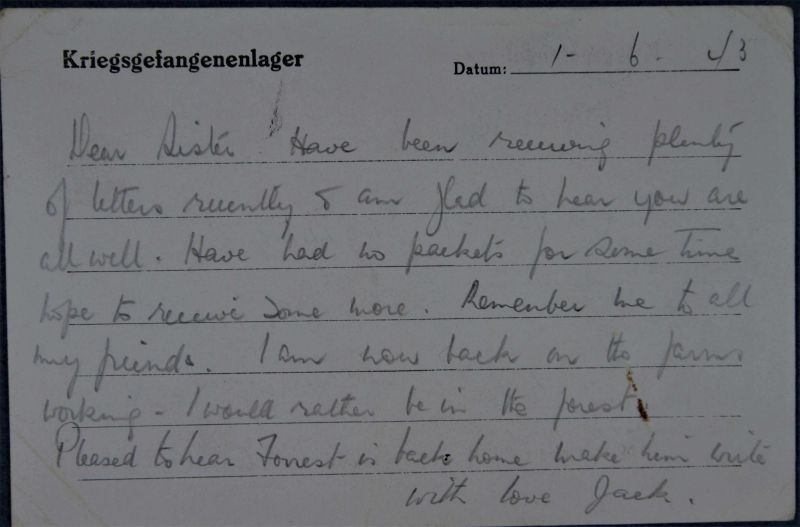 Kriegsgefangenenlager
Datum: 1 - 6 - 43
Dear Sister Have been receiving plenty
of letters recently & am glad to hear you are
all well. Have had no packets for some time
hope to receive some more. Remember me to all
my friends. I am now back on the farms
working - I would rather be in the forest.
Pleased to hear Forrest is back home make him write
with love Jack.